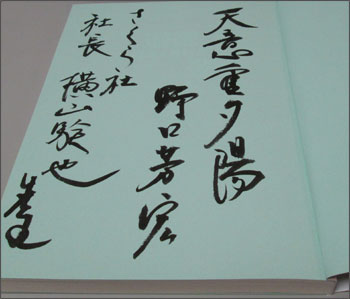 天意重夕陽
野口芳宏
さくら社
社長 横山験也